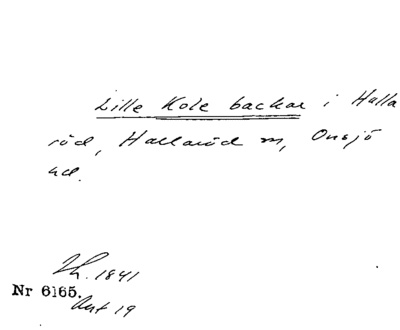 Lille Kole backar i Halla
röd, Hallaröd sn, Onsjö
hd.
Th. 1841
Nr 6165.
Akt 19